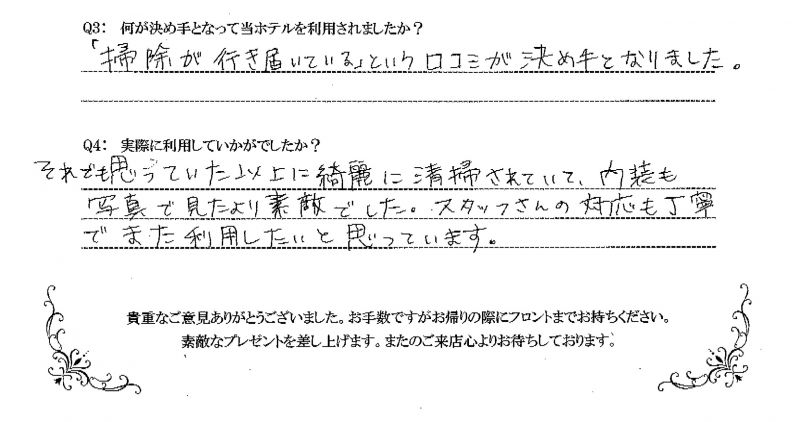 Q3: 何が決め手となって当ホテルを利用されましたか？
「掃除が行き届いている」という口コミが決め手となりました。
Q4: 実際に利用していかがでしたか？
それでも思っていた以上に綺麗に清掃されていて、内装も
写真で見たより素敵でした。スタッフさんの対応も丁寧
でまた利用したいと思っています。
貴重なご意見ありがとうございました。お手数ですがお帰りの際にフロントまでお持ちください。
素敵なプレゼントを差し上げます。またのご来店心よりお待ちしております。